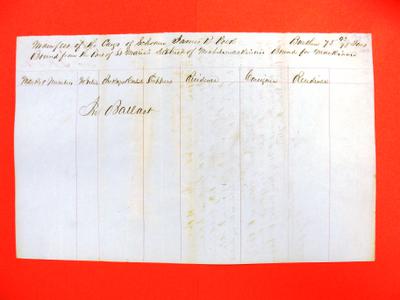 Manifest of the Cargo of Schooner James K Polk Burthen 75 Tons
Bound from the Port of St Marie's district of Michilimackinac Bound for Mackinac
Marks & Numbers No Entry Packages & Contents Shippers Residence Consignee Residence
In Ballast